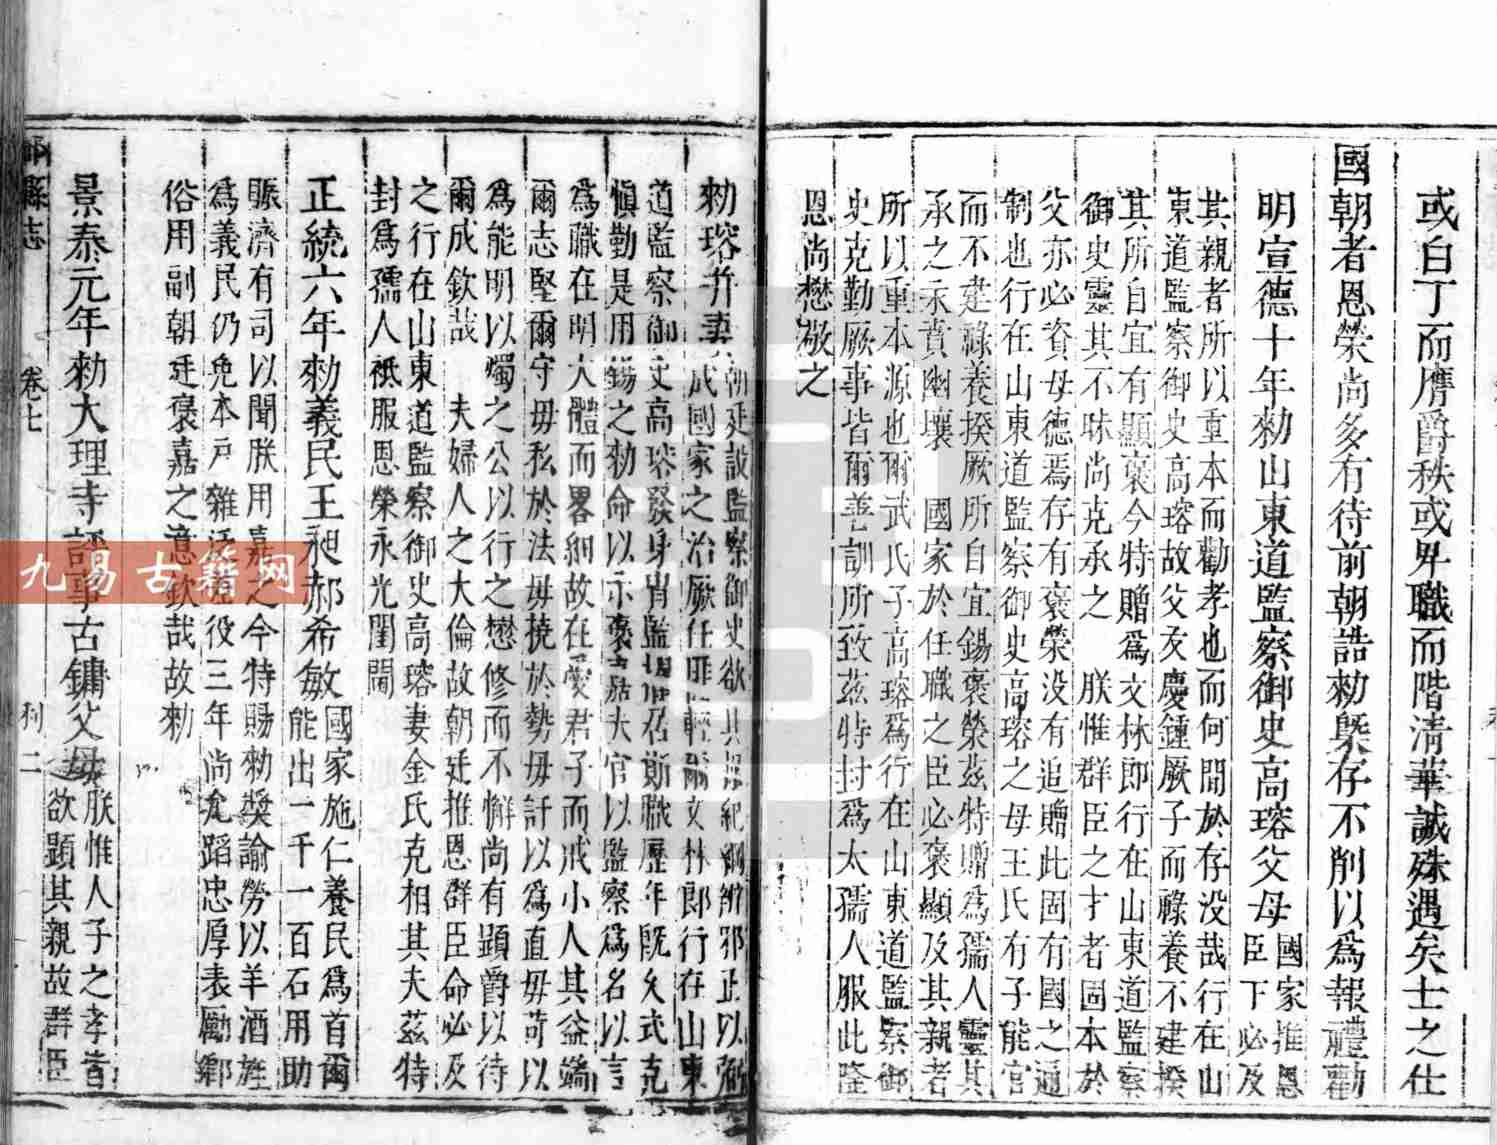 或白丁而膺爵秩或卑職而階清華誠殊遇矣士之仕
國朝者恩榮尚多有待前朝誥勅槩存不削以爲報禮勸
明宣德十年勅山東道監察御史高瑢父母
國家推恩
臣下必及
其親者所以重本而勸孝也而何間於存没哉行在山
東道監察御史高瑢故父友慶鍾厥子而祿養不建揆
其所自宜有顯褒今特贈爲文林郎行在山東道監察
御史靈其不昧尚克承之 朕惟群臣之才者固本於
父亦必資母德焉存有褒榮没有追贈此固有國之通
制也行在山東道監察御史高瑢之母王氏有子能官
而不建祿養揆厥所自宜錫褒榮茲特贈爲孺人靈其
承之永賁幽壤 國家於任職之臣必褒顯及其親者
所以重本源也爾武氏子高瑢爲行在山東道監察御
史克勤厥事皆爾善訓所致茲特封爲太孺人服此隆
恩尚懋敬之
勅瑢并妻
朝廷設監察御史欲其振紀綱辨邪正以弼
成國家之治厥任匪輕爾文林郎行在山東
道監察御史高瑢發身胄監擢居斯職歷年旣久式克
愼勤是用錫之勅命以示褒嘉夫官以監察爲名以言
爲職在明大體而畧細故在愛君子而戒小人其益端
爾志堅爾守毋私於法毋撓於勢毋訐以爲直毋苛以
爲能明以燭之公以行之懋修而不懈尚有顯爵以待
爾成欽哉 夫婦人之大倫故朝廷推恩群臣命必及
之行在山東道監察御史高瑢妻金氏克相其夫茲特
封爲孺人祇服恩榮永光閨閫
正統六年勅義民王昶郝希敏
國家施仁養民爲首爾
能出一千一百石用助
賑濟有司以聞朕用嘉之今特賜勅獎諭勞以羊酒旌
爲義民仍免本戶雜泛差役三年尚允蹈忠厚表勵鄉
俗用副朝廷褒嘉之意欽哉故勅
景泰元年勅大理寺評事古鏞父母
朕惟人子之孝皆
欲顯其親故群臣
縣志
卷七
二
九易古籍网